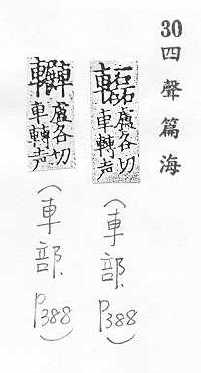 30四聲篇海
盧各切
車轉声
(車部.P388)
盧各切
車轉声
(車部.P388)